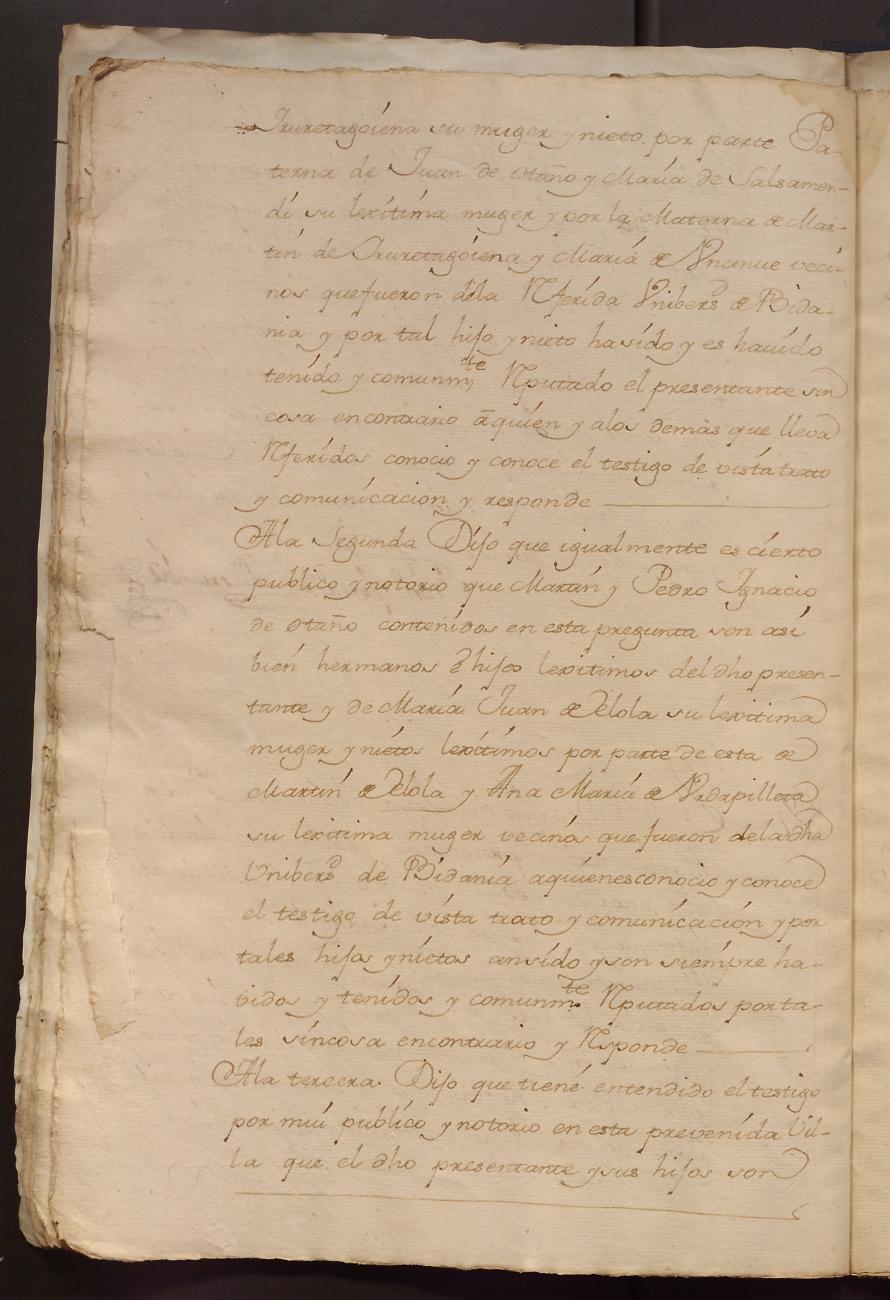 Iruretagoiena su muger y nieto por parte Pa-
terna de Juan de otaño y María de Salsamen-
di su lexitima muger y por la Materna de Mar-
tin de Iruretagoiena y María de Vnanue veci-
nos que fueron dela Rferida Vnibersd de Bida-
nia y por tal hijo y nieto ha sido y es hauido
tenido y comunmte Rputado el presentante sin
cosa encontrario a quien y alos demas que lleva
Rferidos conocio y conoce el testigo de vista trato
y comunicacion y responde
Ala Segunda Dijo que igualmente es cierto
publico y notorio que Martin y Pedro Ignacio
de otaño contenidos en esta pregunta son asi
bien hermanos è hijos lexitimos del dho presen-
tante y de María Juan de Elola su lexitima
muger y nietos lexitimos por parte de esta de
Martin de Elola y Ana María de Vrdapilleta
su lexitima muger vecinos que fueron de la dha
Vnibersd de Bidania aquienes conocio y conoce
el testigo de vista trato y comunicación y por
tales hijos y nietos an sido y son siempre ha-
vidos y tenidos y comunmte Rputados por ta-
les sin cosa encontrario y Rsponde
Ala tercera Dijo que tiene entendido el testigo
por mui publico y notorio en esta prevenida Vil-
la que el dho presentante y sus hijos son